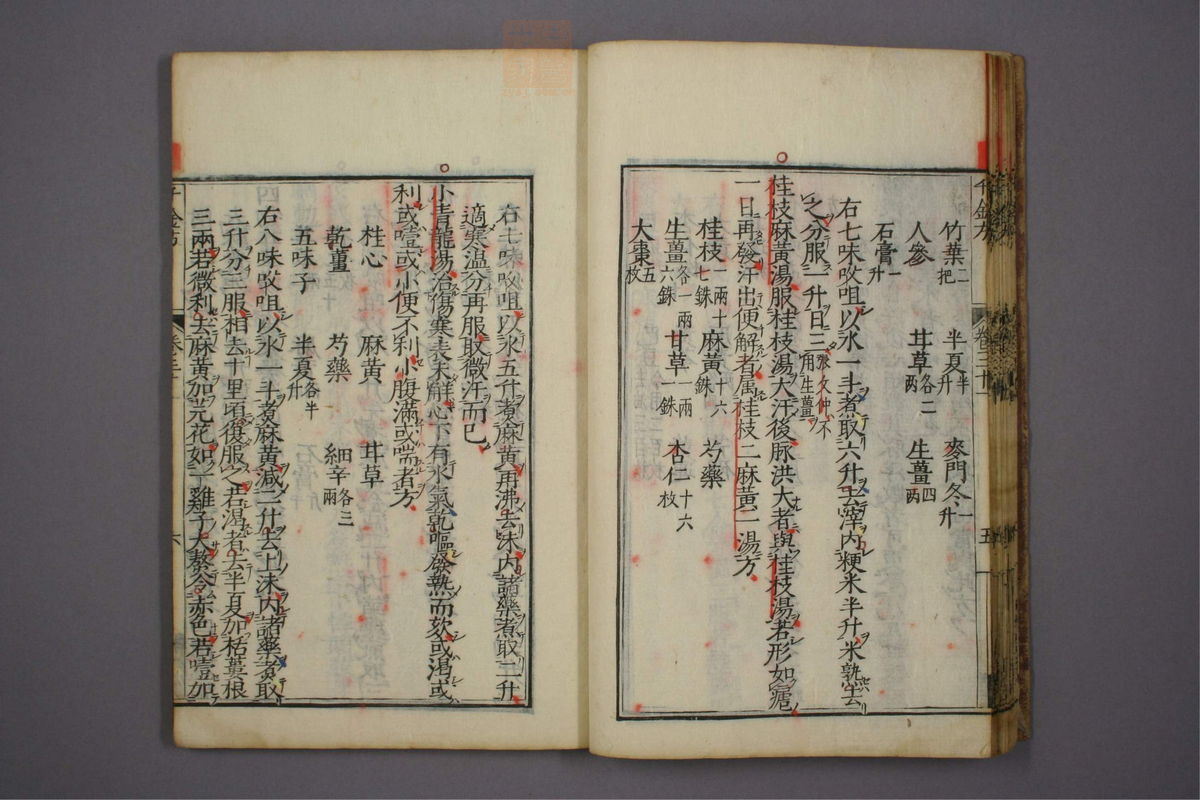 竹葉二把 半夏半升 麥門冬一升
人參 甘草各二两 生薑四两
石膏一升
右七味㕮咀以水一斗煮取六升去滓内粳米半升米熟去
之分服一升日三張文仲不用生薑
桂枝麻黃湯服桂枝湯大汗後脉洪大者與桂枝湯若形如瘧
一日再發汗出便解者属桂枝二麻黃一湯方
桂枝一兩十七銖 麻黃十六銖 芍藥
生薑各一兩六銖 甘草一兩一銖 杏仁十六枚
大棗五枚
五
右七味㕮咀以水五升煮麻黃再沸去沫内諸藥煮取二升
適寒温分再服取微汗而已
小青龍湯治傷寒表未解心下有水氣乾嘔發熱而欬或渴或
利或噎或小便不利小腹滿或喘者方
桂心 麻黃 甘草
乾薑 芍藥 細辛各三兩
五味子 半夏各半升
右八味㕮咀以水一斗煮麻黃減二升去上沫内諸藥煮取
三升分三服相去十里頃復服之若渴者去半夏加栝蔞根
三兩若微利去麻黃加芫花如一雞子大熬令赤色若噎加
六